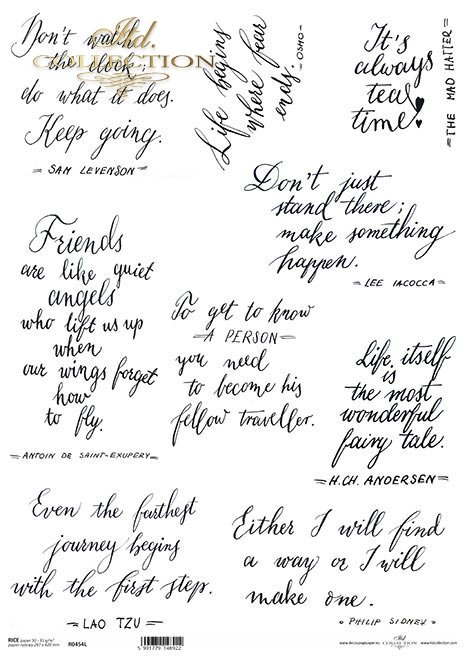 Don't watch
the clock;
do what it does.
Keep going.
SAM LEVENSON
Itd.
COLLECTION
Life begins
where fear
ends.
OSHO
It's
always
tea
time!
THE MAD HATTER
Don't just
stand there;
make something
happen.
LEE IACOCCA
Friends
are like quiet
angels
who lift us up
when
our wings forget
how
to fly.
ANTOIN DE SAINT-EXUPERY
To get to know
A PERSON
you need
to become his
fellow traveller.
Life itself
is
the most
wonderful
fairy tale.
H.CH. ANDERSEN
Even the farthest
journey begins
with the first step.
LAO TZU
Either I will find
a way or I will
make one.
PHILIP SIDNEY
RICE
R0454L
5 901779 148922
Itd.
COLLECTION
www.itdcollection.com